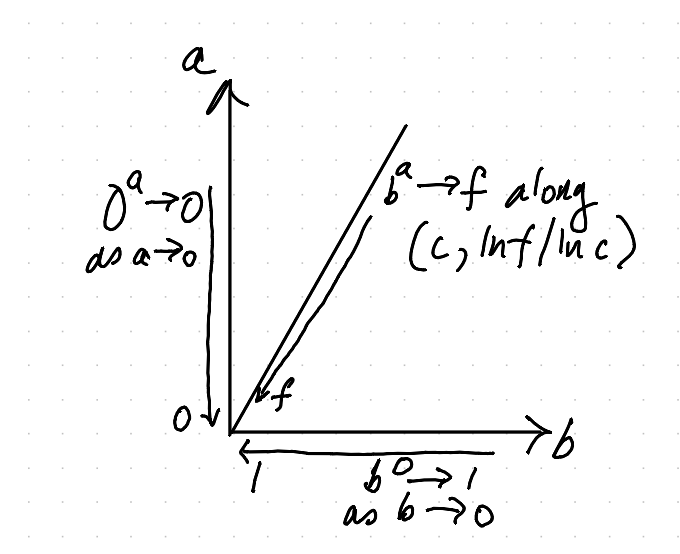 a
0^a → 0
as a → 0
b^a → f along
(c, ln f / ln c)
f
0
b
1
b^0 → 1
as b → 0